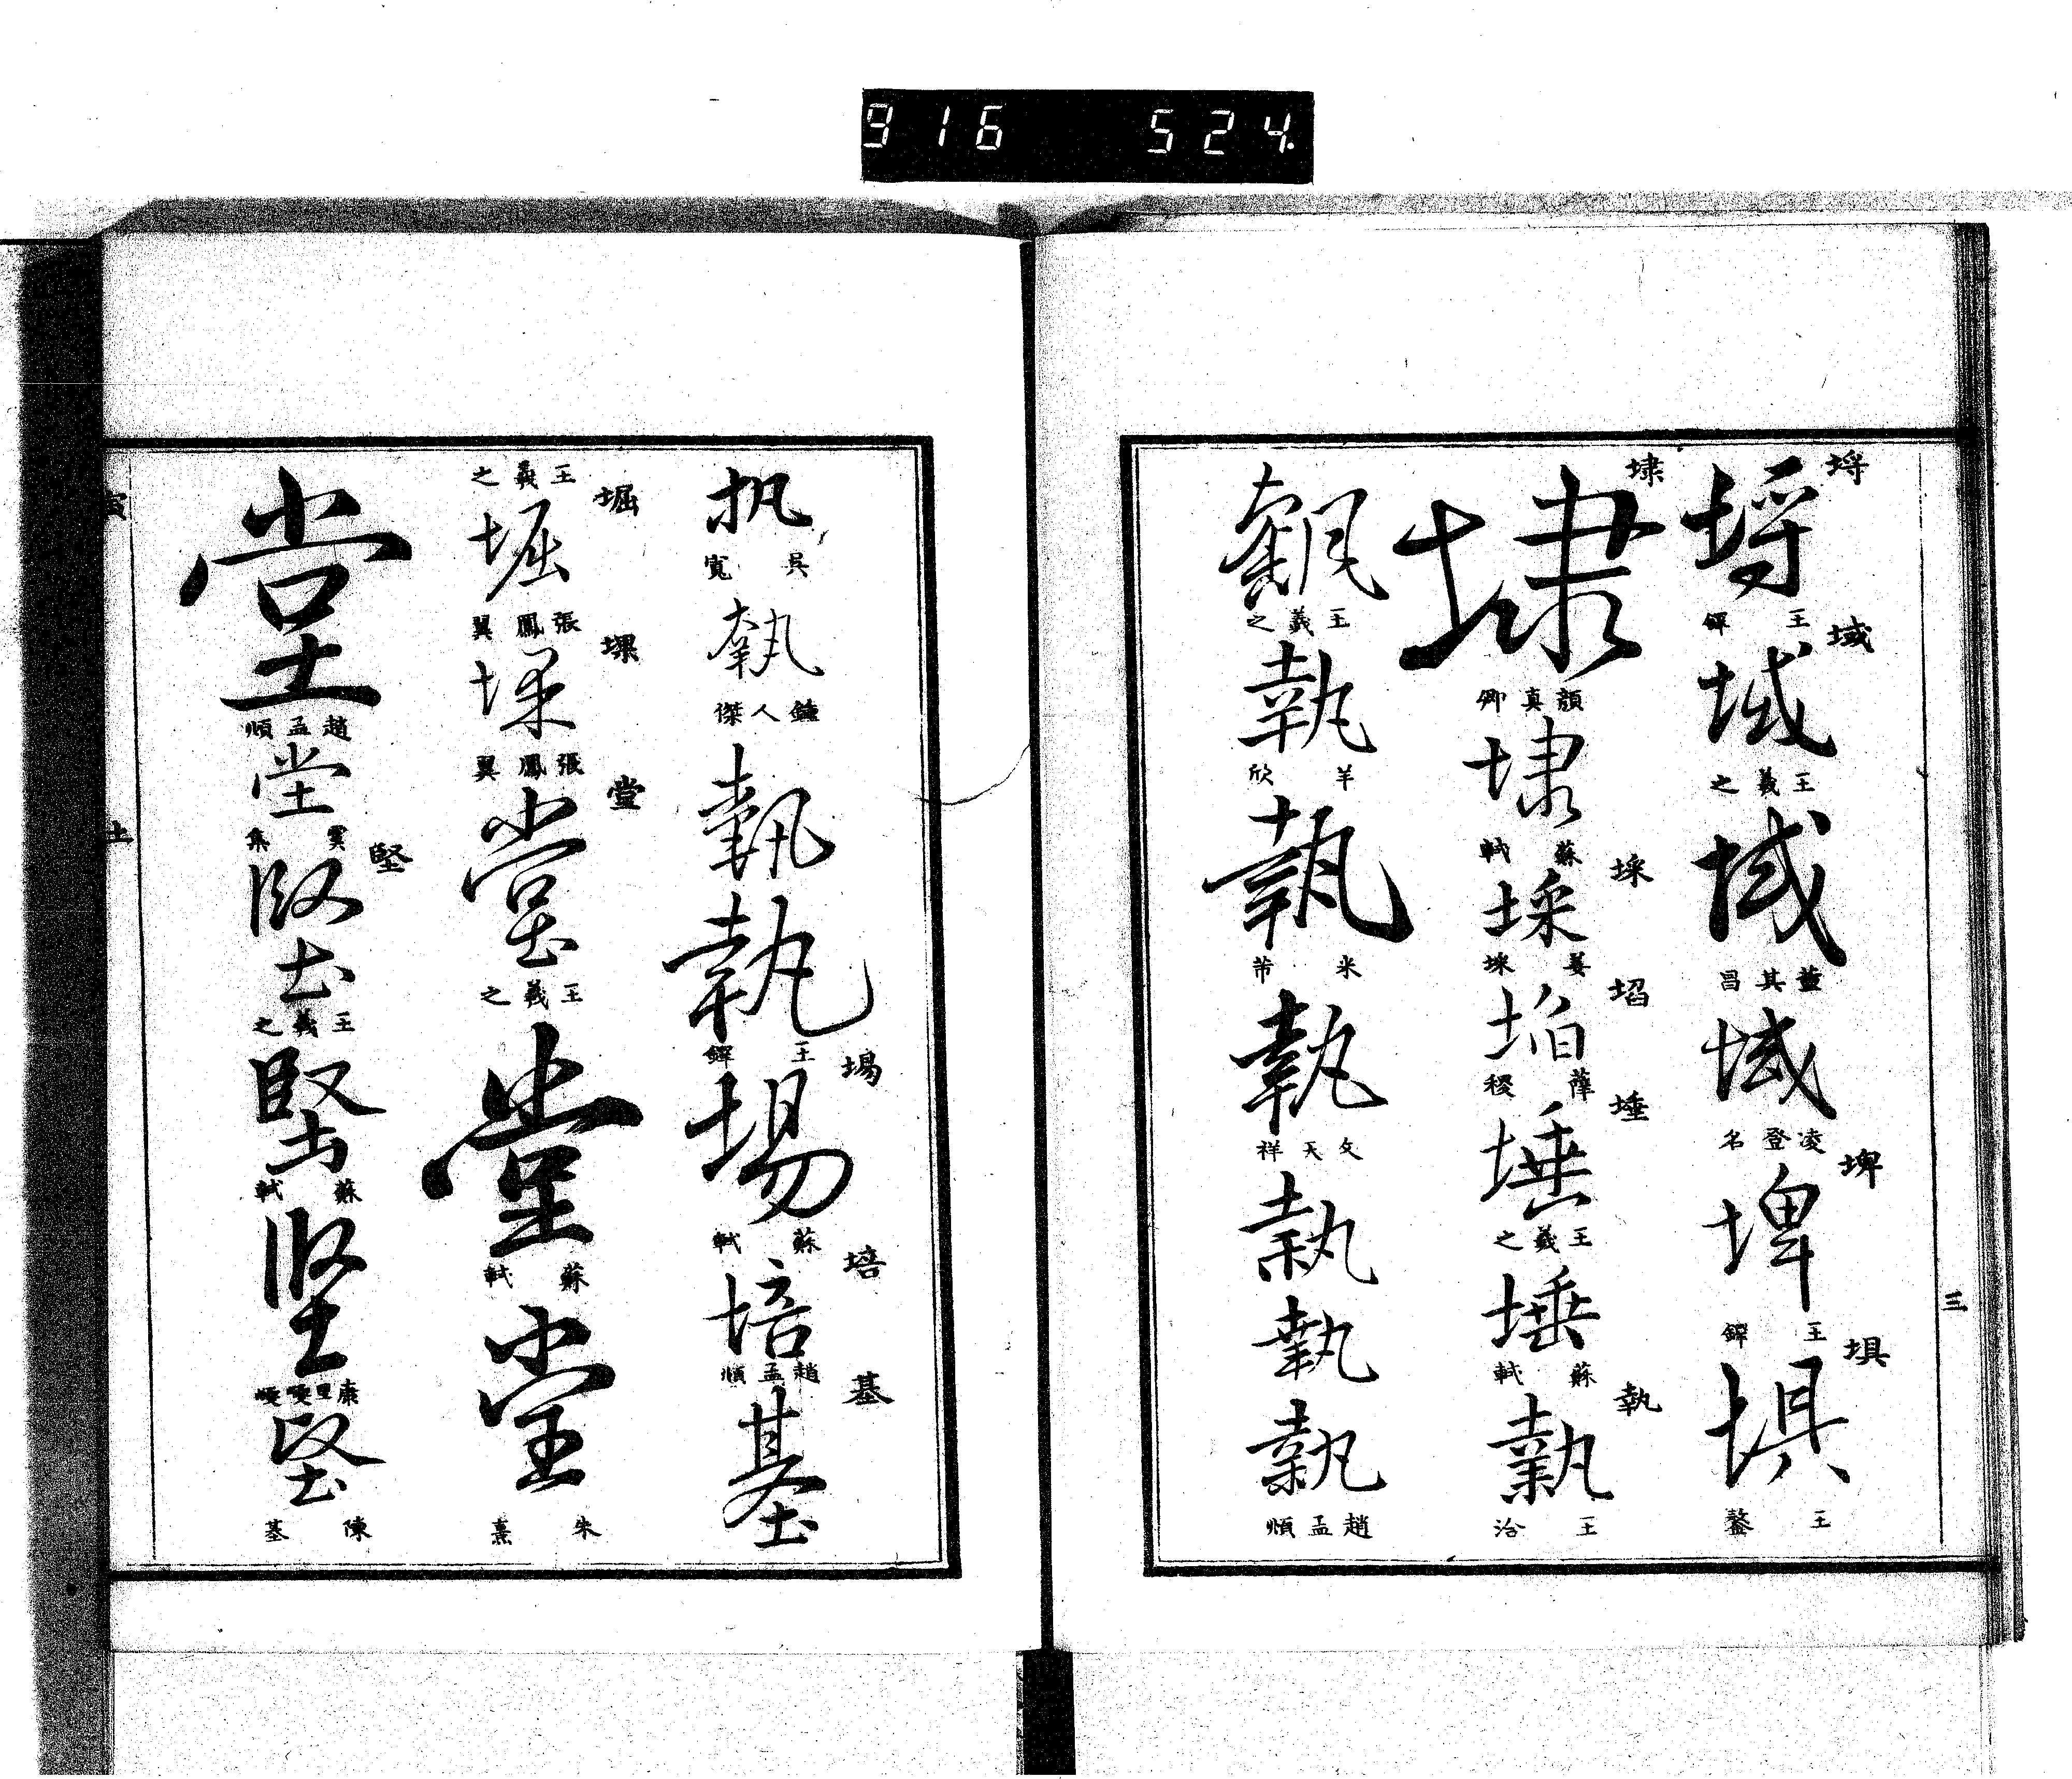 916 524.
三
埒 埒 王鐸
域 域 王羲之 域 董其昌 域 凌登名
埤 埤 王鐸
埧 埧 王鏊
埭 埭 顏真卿 埭 蘇軾
埰 埰 姜埰
埳 薛稷
埵 埵 王羲之 埵 蘇軾
執 執 王洽
執 王羲之 執 羊欣 執 米芾 執 文天祥 執 執 執 趙孟頫
执 吳寬 執 鍾人傑 執 執 王鐸
場 場 蘇軾
培 培 趙孟頫
基 基
王羲之
堀 堀 張鳳翼
堁 張鳳翼
堂 堂 王羲之 堂 蘇軾 堂 朱熹
堂 趙孟頫 堂 虞集
堅 堅 王羲之 堅 蘇軾 堅 康里巎巎 堅 陳基
寅 土